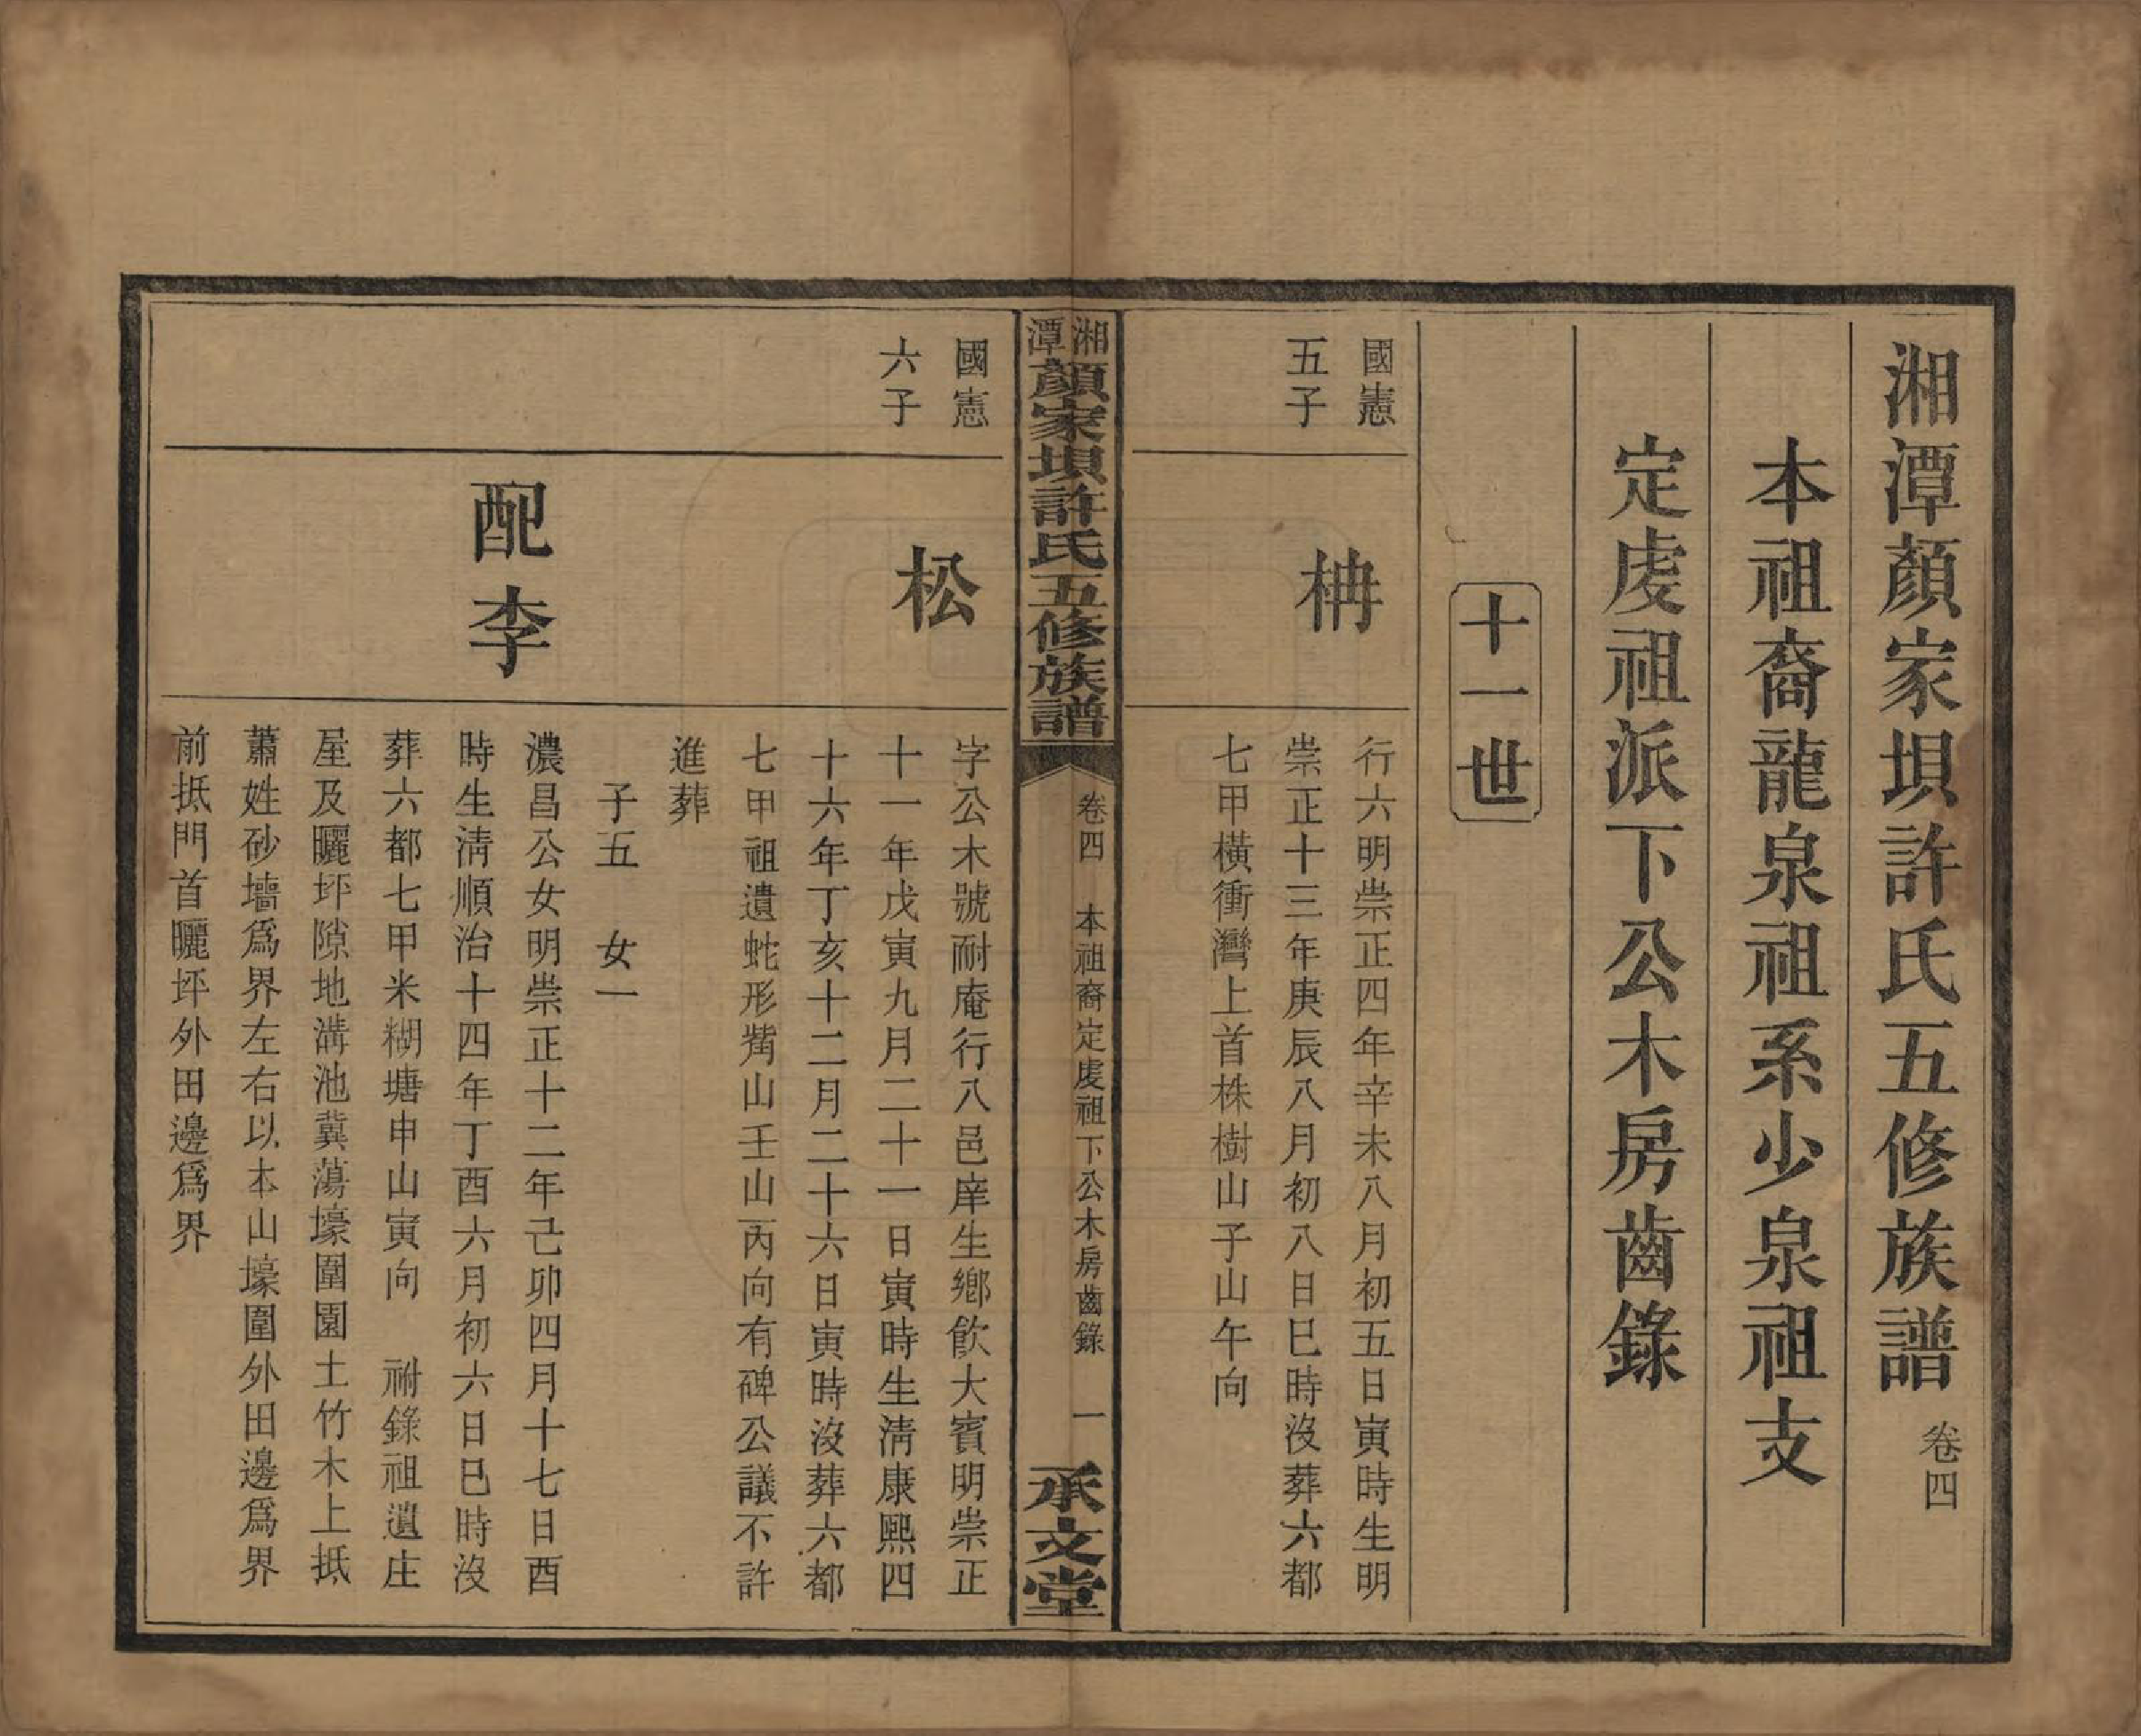 湘潭顏家垻許氏五修族譜 卷四
本祖裔龍泉祖系少泉祖支
定虔祖派下公木房齒錄
十一世
國憲
五子
枬
行六明崇正四年辛未八月初五日寅時生明
崇正十三年庚辰八月初八日巳時沒葬六都
七甲橫衝灣上首株樹山子山午向
湘潭顏家垻許氏五修族譜 卷四 本祖裔定虔祖下公木房齒錄 一 承文堂
國憲
六子
松
字公木號耐庵行八邑庠生鄉飲大賓明崇正
十一年戊寅九月二十一日寅時生清康熙四
十六年丁亥十二月二十六日寅時沒葬六都
七甲祖遺蛇形觜山壬山丙向有碑公議不許
進葬
子五 女一
配李
濃昌公女明崇正十二年己卯四月十七日酉
時生清順治十四年丁酉六月初六日巳時沒
葬六都七甲米糊塘申山寅向 祔錄祖遺庄
屋及曬坪隙地溝池糞蕩壕圍園土竹木上抵
蕭姓砂墻爲界左右以本山壕圍外田邊爲界
前抵門首曬坪外田邊爲界